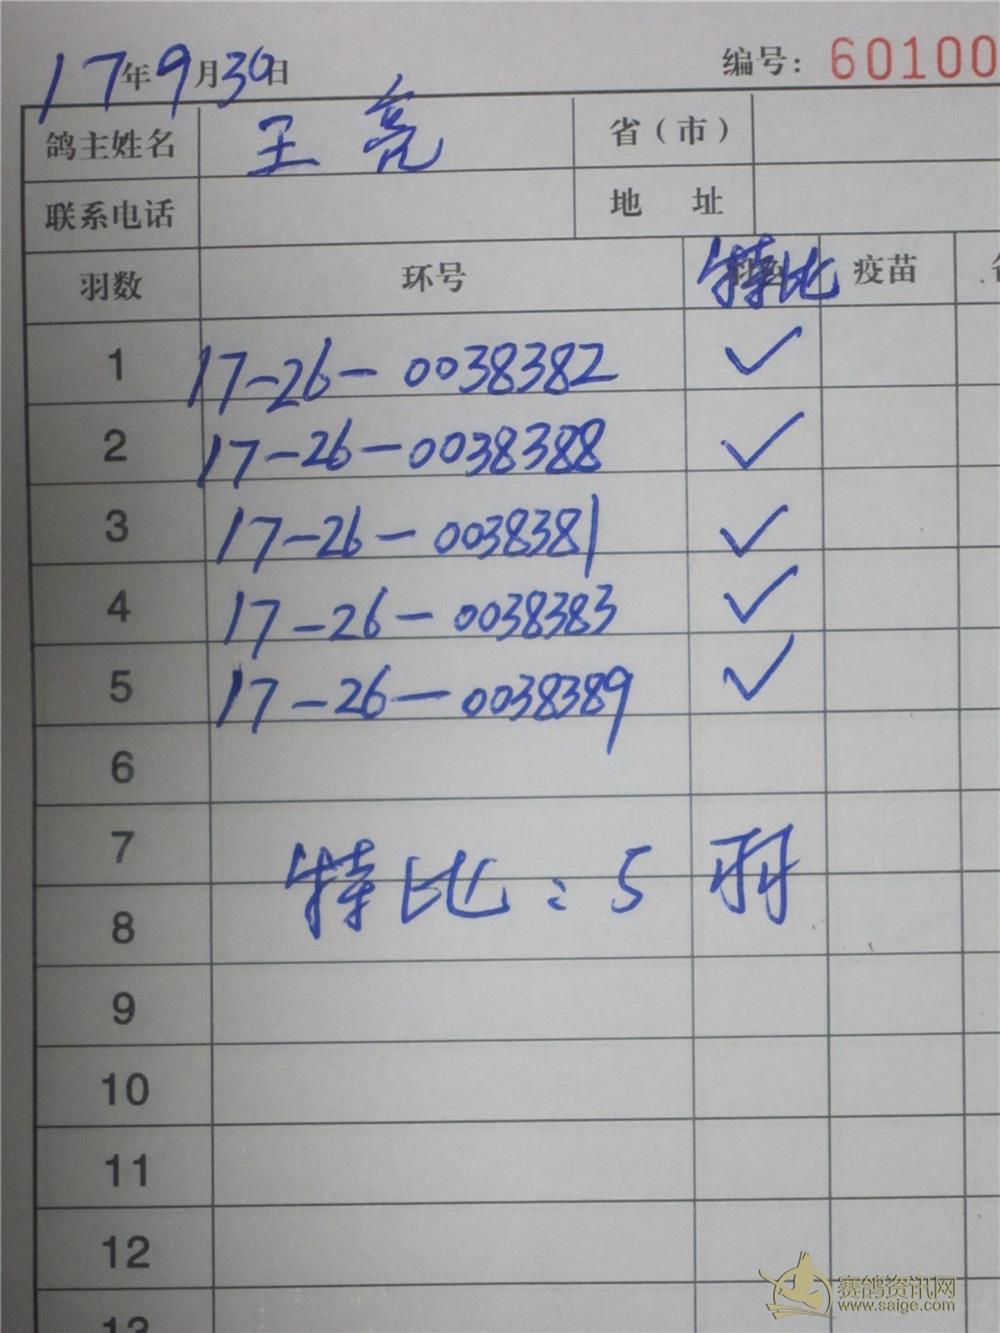 17年9月30日 编号：60100
鸽主姓名 王亮 省（市）
联系电话 地 址
羽数 环号 特比 疫苗
1 17-26-0038382 ✓
2 17-26-0038388 ✓
3 17-26-0038381 ✓
4 17-26-0038383 ✓
5 17-26-0038389 ✓
6
7
特比：5羽
8
9
10
11
12
13
赛鸽资讯网
www.saige.com